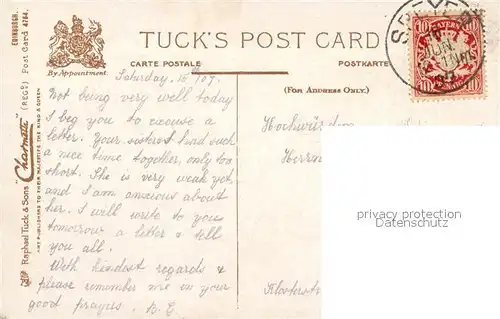 TUCK'S POST CARD
CARTE POSTALE
POSTKARTE
(FOR ADDRESS ONLY.)
By Appointment
EDINBURGH.
Post Card 4784.
Raphael Tuck & Sons "Charmette" (REGD)
ART PUBLISHERS TO THEIR MAJESTIES THE KING & QUEEN
BAYERN
10
10
Saturday
Not being very well today
I beg you to excuse a
letter. Your sister & I had such
a nice time together, only too
short. She is very weak yet
and I am anxious about
her. I will write to you
tomorrow a letter & tell
you all.
With kindest regards &
please remember me in your
good prayers.
Hochwürden
Herrn
Klosterstr
privacy protection
Datenschutz